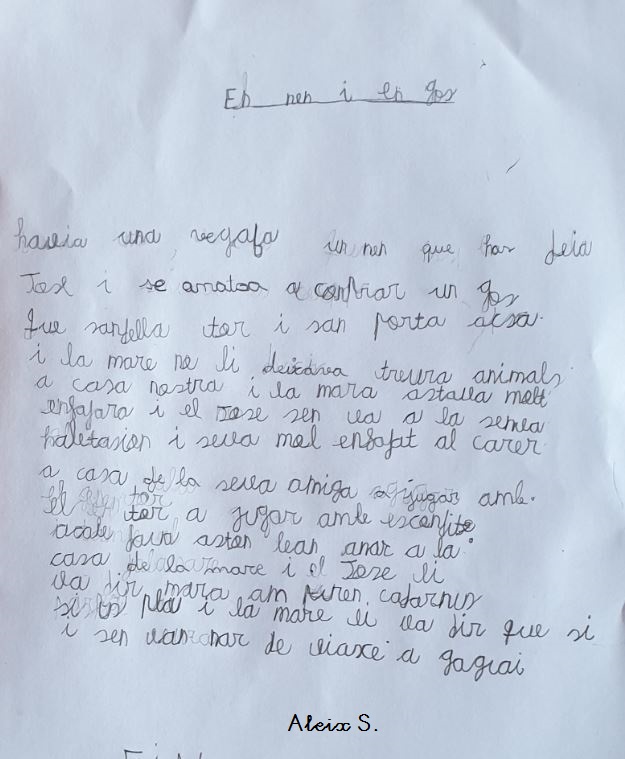 En nen i en gos
havia una vegafa un nen que has deia
Jose i se anataa a comprar un gos
que sanfella tor i san porta acsa.
i la mare no li deixava treura animals
a casa nostra i la mara astava molt
enfafara i el Jose sen va a la seneva
habitasion i seva mol enfafat al carer
a casa de la seva amiga a jugar amb.
El tor a jugar amb esconfite
fava asten lean anar a la
casa de la mare i el Jose li
va dir mara am puren casarnus
si us pla i la mare li va dir que si
i sen van anar de viaxe a
Aleix S.